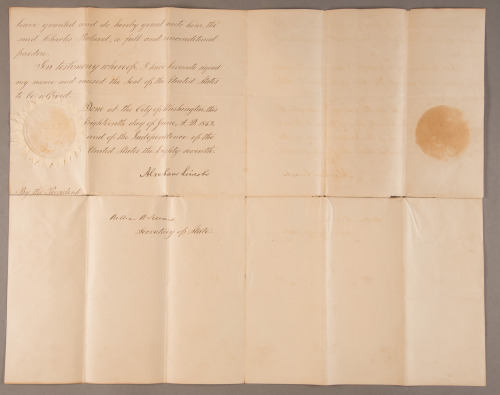 have granted and do hereby grant unto him, the
said Charles
a full and unconditional
pardon.
In testimony whereof, I have hereunto signed
my name and caused the Seal of the United States
to be affixed.
Done at the City of Washington, this
Eighteenth day of June, A.D. 1863,
and of the Independence of the
United States the Eighty seventh.
Abraham Lincoln
By the President
William H. Seward
Secretary of State.